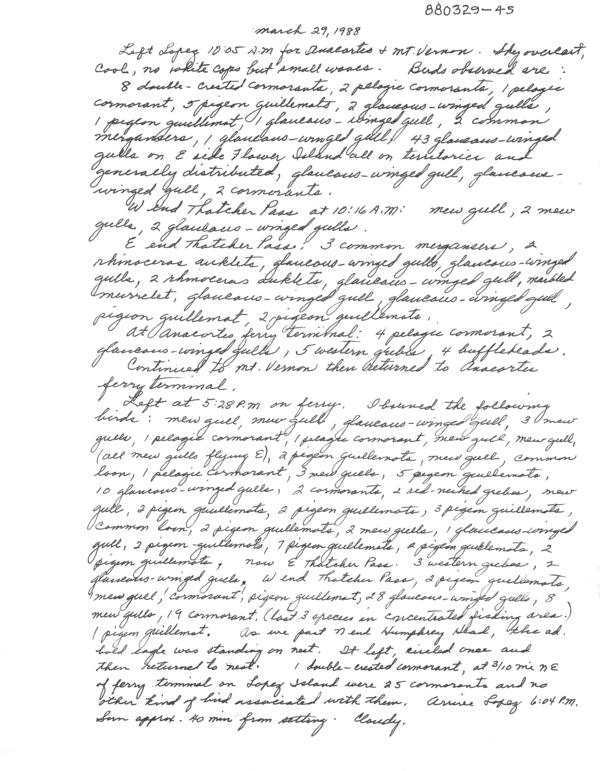 880329-45
March 29, 1988
Left Lopez 10:05 A.M for Anacortes + Mt. Vernon. Sky overcast,
cool, no white caps but small waves. Birds observed are :
8 double-crested cormorants, 2 pelagic cormorants, 1 pelagic
cormorant, 5 pigeon guillemots, 2 glaucous-winged gulls,
1 pigeon guillemot, 1 glaucous-winged gull, 2 common
mergansers, 1 glaucous-winged gull, 43 glaucous-winged
gulls on E side Flower Island all on territories and
generally distributed, glaucous-winged gull, glaucous-
winged gull, 2 cormorants.
W end Thatcher Pass at 10:16 A.M: mew gull, 2 mew
gulls, 2 glaucous-winged gulls.
E end Thatcher Pass: 3 common mergansers, 2
rhinoceros auklets, glaucous-winged gulls, glaucous-winged
gulls, 2 rhinoceros auklets, glaucous-winged gull, marbled
murrelet, glaucous-winged gull, glaucous-winged gull,
pigeon guillemot, 2 pigeon guillemots.
At Anacortes ferry terminal: 4 pelagic cormorant, 2
glaucous-winged gulls, 5 western grebes, 4 buffleheads.
Continued to Mt. Vernon then returned to Anacortes
ferry terminal.
Left at 5:28 P.M on ferry. I observed the following
birds: mew gull, mew gull, glaucous-winged gull, 3 mew
gulls, 1 pelagic cormorant, 1 pelagic cormorant, mew gull, mew gull,
(all mew gulls flying E), 2 pigeon guillemots, mew gull, common
loon, 1 pelagic cormorant, 3 mew gulls, 5 pigeon guillemots,
10 glaucous-winged gulls, 2 cormorants, 2 red-necked grebes, mew
gull, 2 pigeon guillemots, 2 pigeon guillemots, 3 pigeon guillemots,
common loon, 2 pigeon guillemots, 2 mew gulls, 1 glaucous-winged
gull, 2 pigeon-guillemots, 7 pigeon guillemots, 2 pigeon guillemots, 2
pigeon guillemots, now E Thatcher Pass. 3 western grebes, 2
glaucous-winged gulls, W end Thatcher Pass, 2 pigeon guillemots,
mew gull, cormorant, pigeon guillemot, 28 glaucous-winged gulls, 8
mew gulls, 19 cormorant. (last 3 species in concentrated feeding area.)
1 pigeon guillemot. As we past N end Humphrey Head, the ad.
bald eagle was standing on nest. It left, circled once and
then returned to nest. 1 double-crested cormorant, at 3/10 mi NE
of ferry terminal on Lopez Island were 25 cormorants and no
other kind of bird associated with them. Arrive Lopez 6:04 P.M.
Sun approx. 40 min from setting. Cloudy.